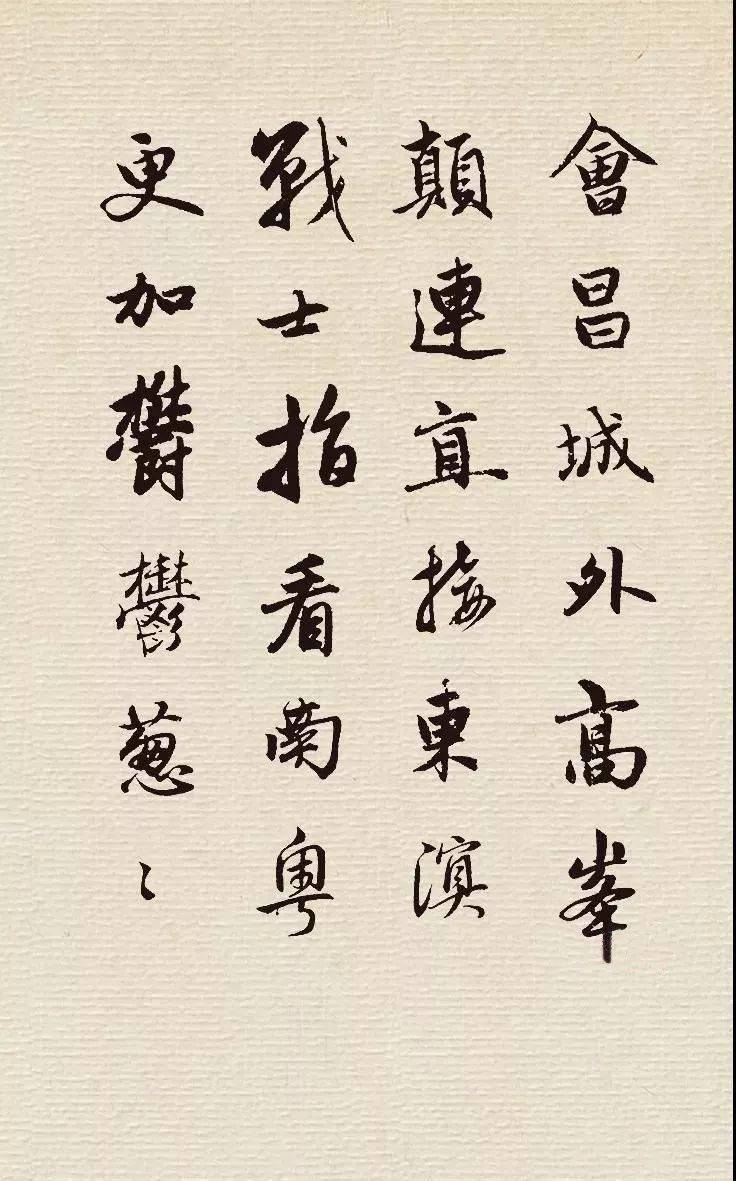 會昌城外高峯
顛連直接東溟
戰士指看南粤
更加鬱鬱葱〻